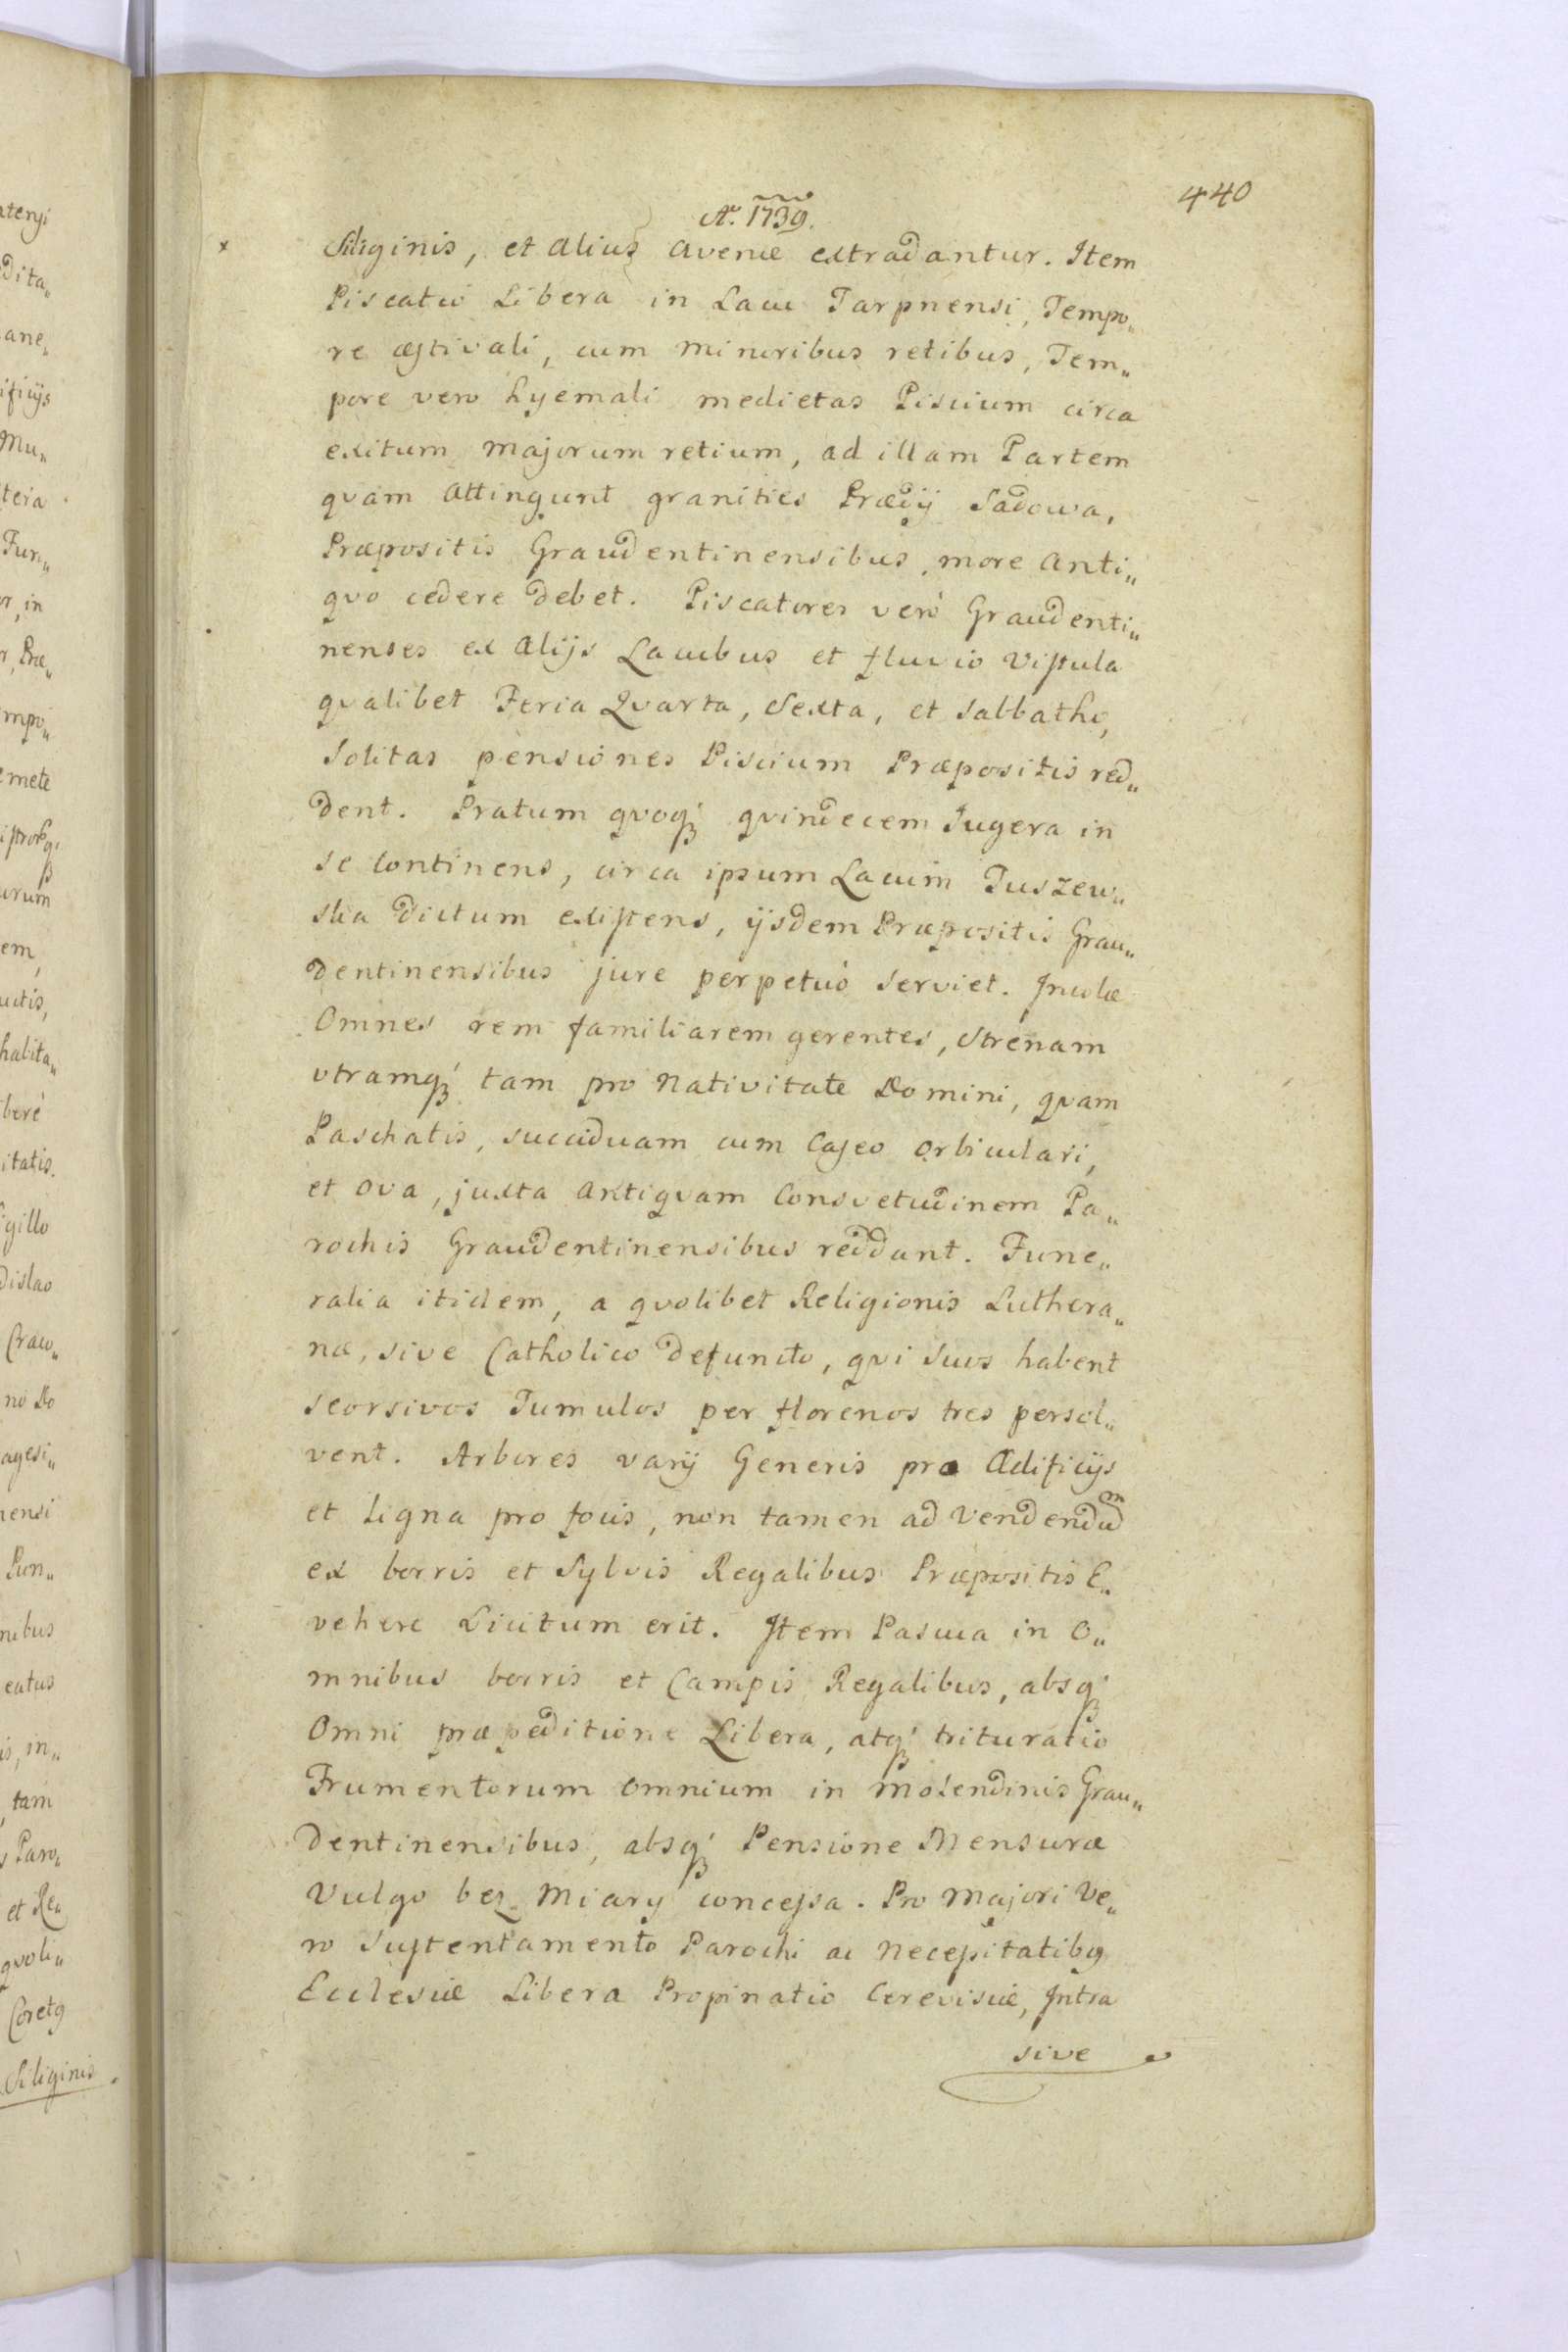 440
Aº. 1739.
Siliginis, et Alius Avenæ extradantur. Item
Piscatio Libera in Lacu Tarpnensi, Tempo„
re æstivali, cum minoribus retibus, Tem„
pore vero hyemali medietas Piscium circa
exitum majorum retium, ad illam Partem
qvam Attingunt granities Prædij Sadowa,
Præpositis Graudentinensibus, more Anti„
qvo cedere debet. Piscatores verò Graudenti„
nenses ex Alijs Lacubus et fluvio Vistula
qvalibet Feria Qvarta, Sexta, et Sabbatho,
Solitas pensiones Piscium Præpositis red„
dent. Pratum qvoq́ qvindecem Jugera in
se Continens, circa ipsum Lacum Tuszew„
ska dictum existens, ijsdem Præpositis Grau„
dentinensibus jure perpetuó Serviet. Incolæ
Omnes rem familiarem gerentes, Strenam
vtramq́ tam pro Nativitate Domini, qvam
Paschatis, succiduam cum Caseo Orbiculari,
et Ova, juxta Antiqvam Consvetudinem Pa„
rochis Graudentinensibus reddant. Fune„
ralia itidem, a qvolibet Religionis Luthera„
næ, sive Catholico defuncto, qvi Suos habent
seorsivos Tumulos per florenos tres persol„
vent. Arbores varij Generis pro Ædificijs
et Ligna pro focis, non tamen ad Vendendum
ex borris et Sylvis Regalibus Præpositis E„
vehere Licitum erit. Item Pascua in O„
mnibus borris et Campis Regalibus, absq́
Omni præpeditione Libera, atq́ trituratio
Frumentorum Omnium in Molendinis Grau„
dentinensibus, absq́ Pensione Mensuræ
Vulgo bez Miary concessa. Pro Majori Ve„
ro Sustentamento Parochi ac Necessitatibq
Ecclesiæ Libera Propinatio Cerevisiæ, Intra
sive
atenji
dita„
ane„
ificijs
Mu„
tera
Fun„
or, in
r, Præ„
mpo„
emete
urum
em,
uctis,
habita„
beré
itatis.
igillo
dislao
Crac„
no Do
agesi„
nensi
Pon„
nibus
eatus
is, in„
, tam
s Paro„
et Re„
qvoli„
Coretq
Siliginis